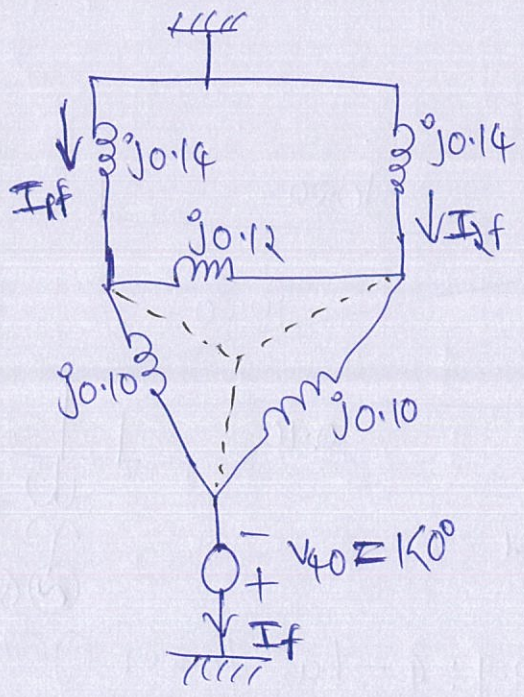 j0.14
j0.14
I1f
I2f
j0.12
j0.10
j0.10
-
V40 = 1∠0°
+
If